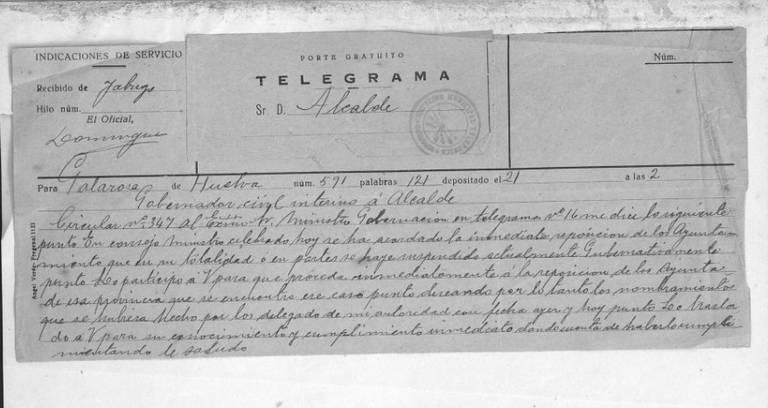 INDICACIONES DE SERVICIO
Recibido de Jabugo
Hilo núm.
El Oficial,
Domingue
PORTE GRATUITO
TELEGRAMA
Sr. D. Alcalde
Núm.
Para Galaroza de Huelva núm. 591 palabras 121 depositado el 21 a las 2
Gobernador civil interino á Alcalde
Circular nº 347 al Excmo Sr. Ministro Gobernación en telegrama nº 16 me dice lo siguiente
punto En consejo Ministro celebrado hoy se ha acordado la inmediata reposicion de los Ayunta
miento que en su totalidad ó en partes se haye suspendido actualmente Gubernativamente
punto Lo participo á V para que proceda inmediatamente á la reposicion de los Ayunta
de esa provincia que se encuentre ese caso punto por lo tanto los nombramiento
que se hubiera hecho por los delegado de mi autoridad con fecha ayer y hoy punto Lo trasla
do a V para su conocimiento y cumplimiento inmediato dando cuenta de haberlo cumpli
mentando le saludo